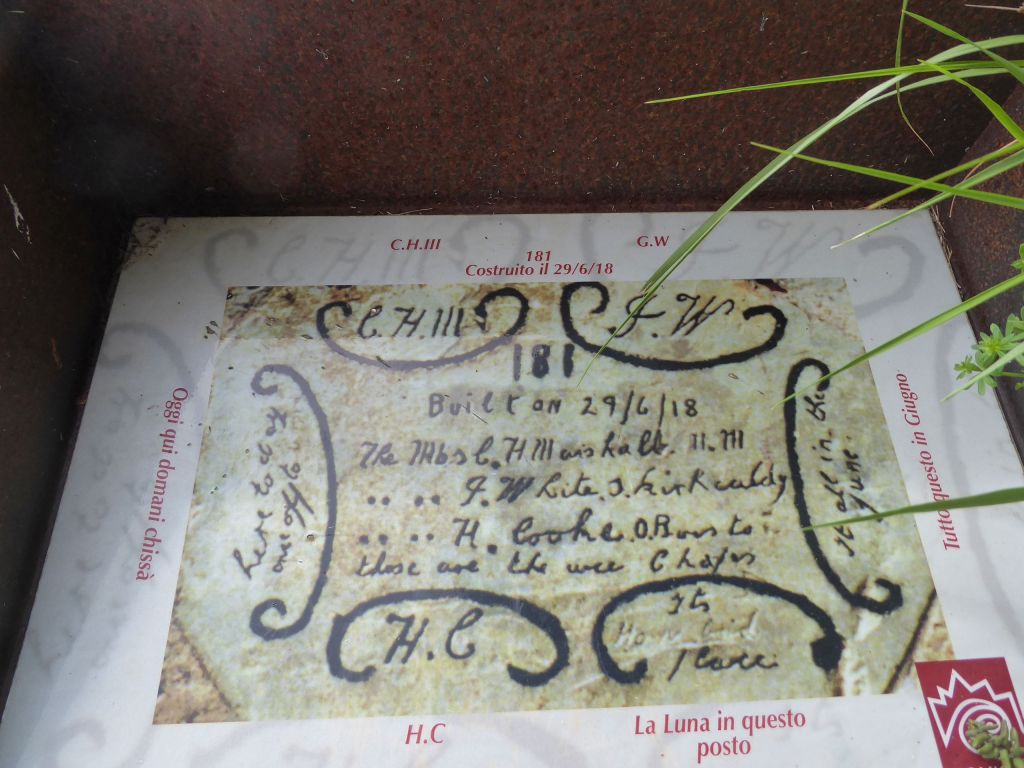 C.H.III
G.W
181
Costruito il 29/6/18
C.H.III
J.W
181
Built on 29/6/18
The Mbs C.H Marshall. 11. M
J. White. J. Kirkcaldy
H. Cooke. O.
those are the wee Chaps
here to day
Oggi qui domani chissà
It all in the
June.
Tutto questo in Giugno
H.C
Its
place
H.C
La Luna in questo
posto